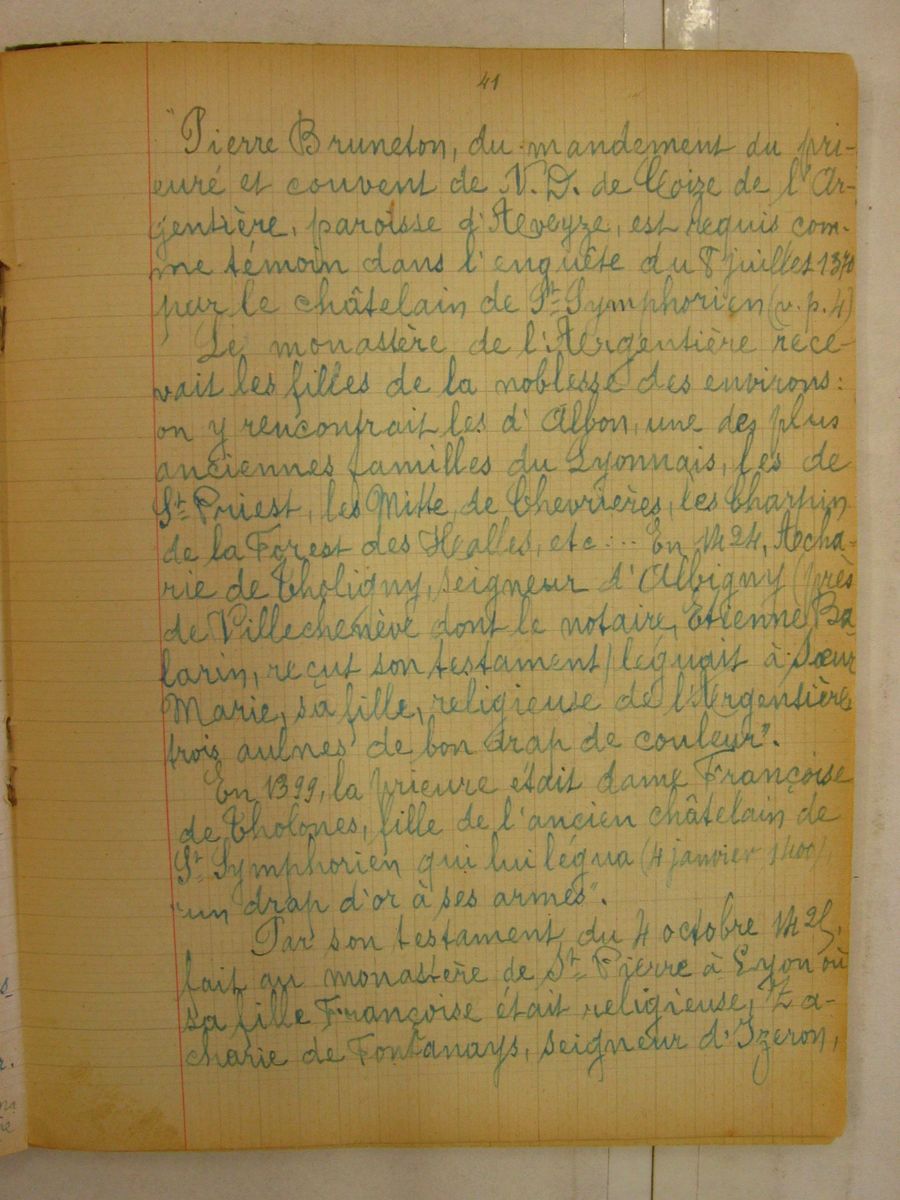 41
"Pierre Bruneton, du mandement du pri-
euré et couvent de N. D. de Coize de l'Ar-
gentière, paroisse d'Aveyze, est requis com-
me témoin dans l'enquête du 8 juillet 1370
par le châtelain de St Symphorien (v. p. 4)
Le monastère de l'Argentière rece-
vait les filles de la noblesse des environs:
on y rencontrait les d'Albon, une des plus
anciennes familles du Lyonnais, les de
St Priest, les Mitte de Chevrières, les Charpin
de la Forest des Halles, etc... En 1424, Acha-
rie de Choligny, seigneur d'Albigny (près
de Villechenève dont le notaire, Etienne Ba
larin, reçut son testament) léguait à Sœur
Marie, sa fille, religieuse de l'Argentière
trois aulnes de bon drap de couleur".
En 1399, la prieure était dame Françoise
de Tholones, fille de l'ancien châtelain de
St Symphorien qui lui légua (4 janvier 1400)
"un drap d'or à ses armes".
Par son testament du 4 octobre
fait au monastère de St Pierre à Lyon où
sa fille Françoise était religieuse, Za-
charie de Fontanays, seigneur d'Izeron,